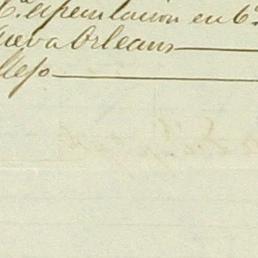 C.ª especulacion en 6.
ueva Orleans
llejo